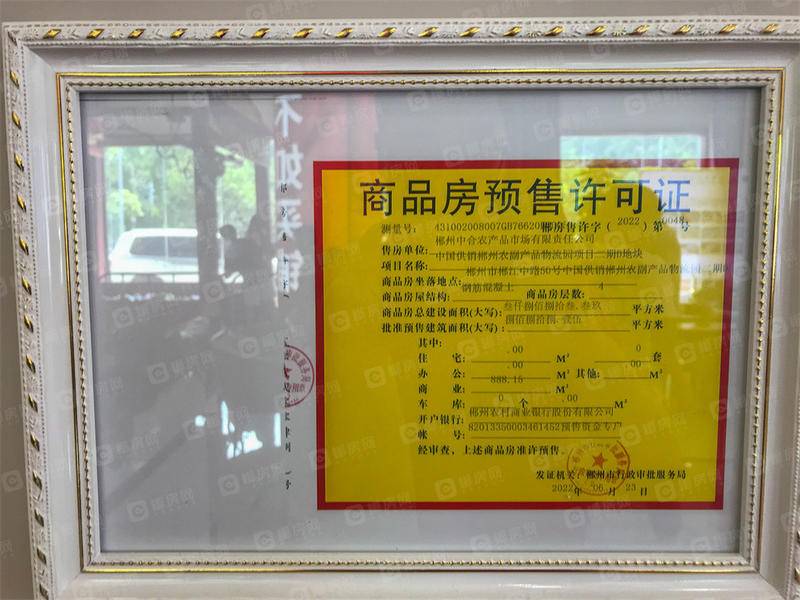 商品房预售许可证
测量号: 431002008007GB7662 郴房售许字(2022)第0048号
郴州中合农产品市场有限责任公司
售房单位:
中国供销郴州农副产品物流园项目二期B地块
项目名称:
郴州市郴江中路50号中国供销郴州农副产品物流园二期
商品房坐落地点:
钢筋混凝土 4
商品房屋结构: 商品房层数:
叁仟捌佰捌拾叁.叁玖
商品房总建设面积(大写): 平方米
捌佰捌拾捌.壹伍
批准预售建筑面积(大写): 平方米
其中:
.00 0
住 宅: M² 套
.00 .00
办 公: M² 其他: M²
888.15
商 业: M²
0 .00
车 库: 个 M²
郴州农村商业银行股份有限公司
开户银行:
82013350003461452预售资金专户
帐 号:
经审查,上述商品房准许预售。
发证机关: 郴州市行政审批服务局
2022年 06月 23日
不如买
郴房网